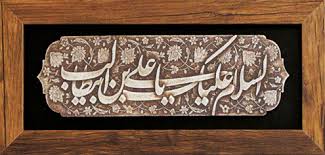 السلام علیک یا علی بن ابیطالب